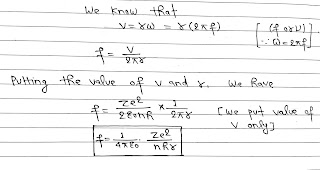 We know that
V = rω = r(2πf) [(f or ν) ∵ ω = 2πf]
f = V/2πr
Putting the value of v and r. We have
f = Ze²/2ε₀nh × 1/2πr [We put value of V only]
f = 1/4πε₀ · Ze²/nhr